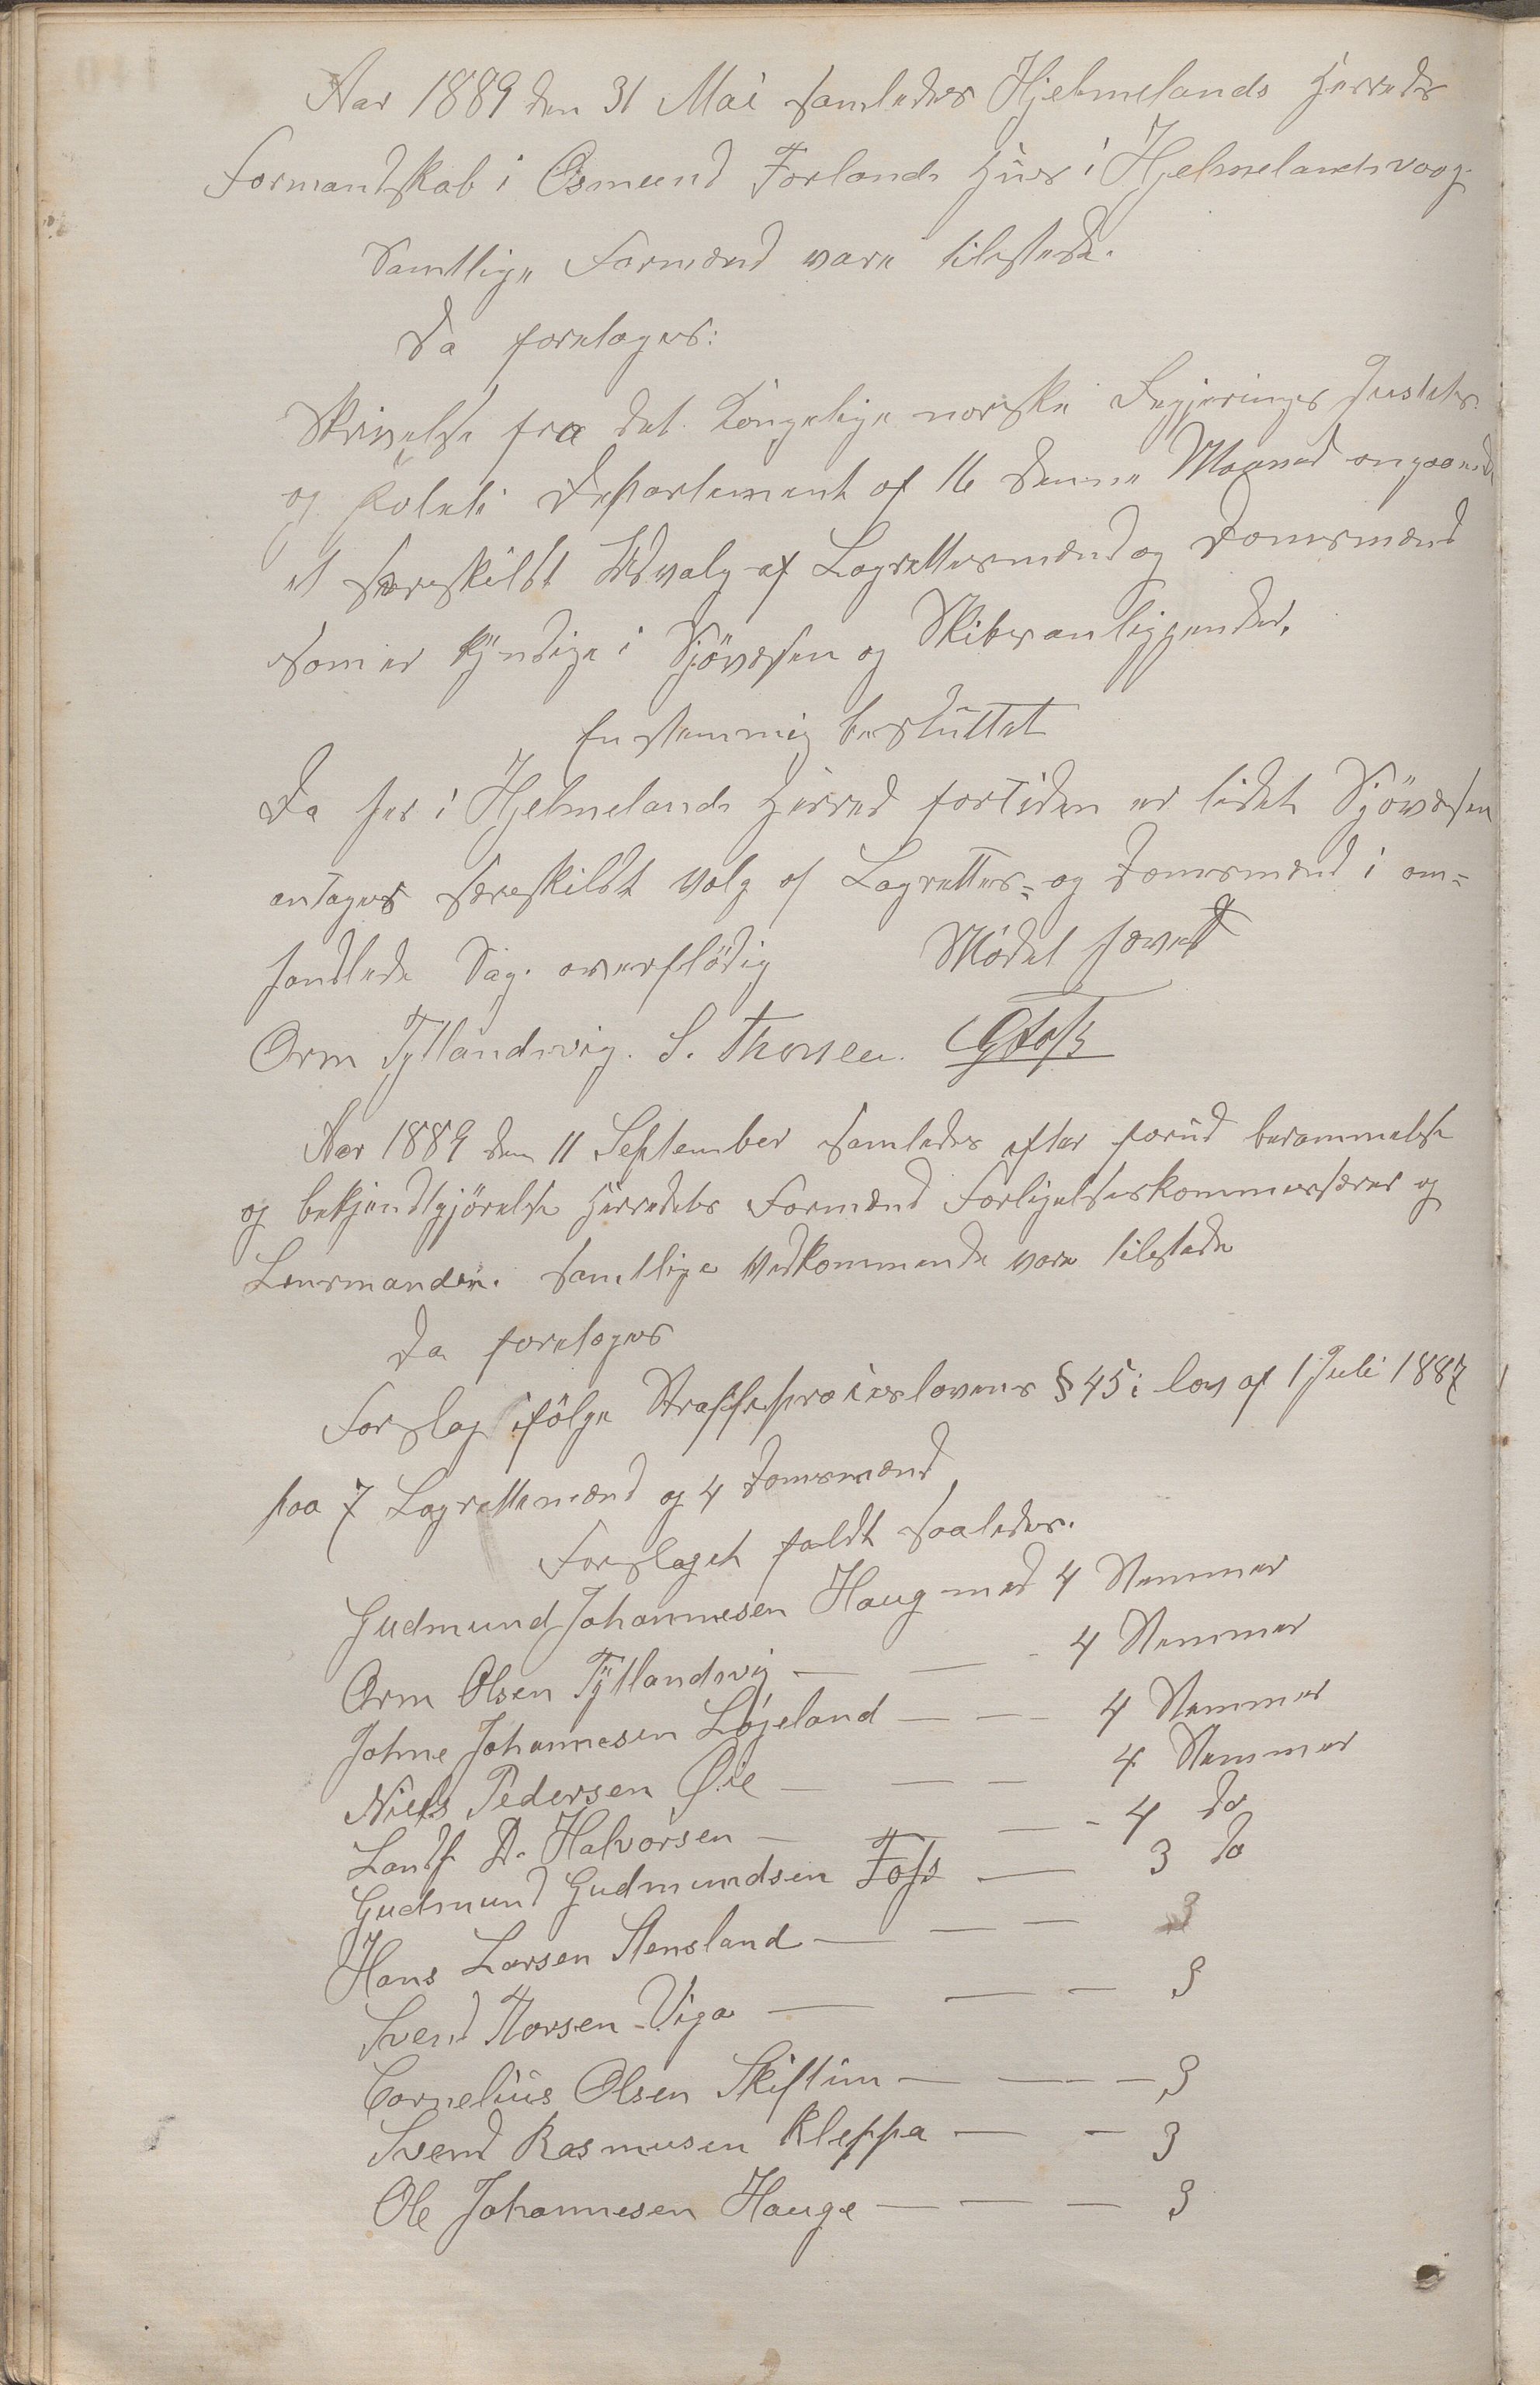 Aar 1889 den 31 Mai samledes Hjelmelands Herreds
Formandskab i Osmund Forlands Huus i Hjelmelandsvaag.
Samtlige Formænd vare tilstede.
Da foretoges:
Skrivelse fra det Kongelige norske Regjerings Justits
og Politi Departement af 16 denne Maaned angaaende
et særskildt Udvalg af Lagrettesmænd og Domsmænd
som er kyndige i Sjövæsen og Skibsanliggender.
Enstemmig besluttet
Da her i Hjelmelands Herred fortiden er lidet Sjövæsen
antages særeskildt Valg af Lagrettes- og Domsmænd i om=
handlede Sag. overflödig Mödet hævet
Orm Tytlandsvig. S. Thorsen. GFoss
Aar 1889 den 11 September samledes efter forud berammelse
og bekjendtgjörelse Herredets Formænd Forligelseskommisærer og
Lensmanden. samtlige Vedkommende vare tilstede
Da foretoges
Forslag ifölge Straffeproceslovens § 45 i lov af 1 Juli 1887
paa 7 Lagrettemænd og 4 Domsmænd
Forslaget faldt saaledes.
Gudmund Johannesen Haug med 4 Stemmer
Orm Olsen Tytlandsvig — — - 4 Stemmer
Johne Johannesen Løjeland — — — 4 Stemmer
Niels Pedersen Øie — — — 4 Stemmer
Landh. D. Halvorsen — — — - 4 do
Gudmund Gudmundsen Foss — 3 do
Hans Larsen Stensland — — — 3
Svend Thorsen Viga — — — 3
Cornelius Olsen Skiftun — — - — 3
Svend Rasmusen Kleppa — — 3
Ole Johannesen Hauge — — — 3